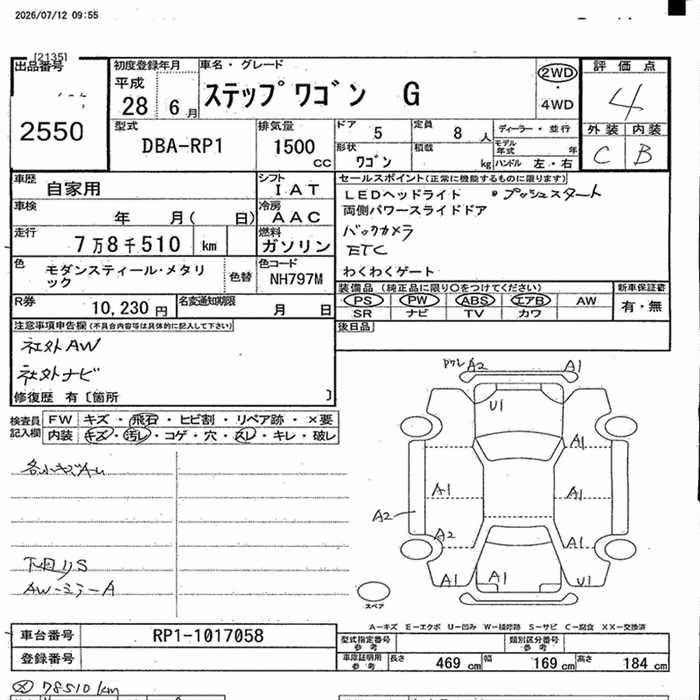 2026/07/12 09:55
[2135]
出品番号
2550
初度登録年月
平成
28 6月
車名・グレード
ステップワゴン G
2WD
・
4WD
評価点
4
外装 内装
C B
型式
DBA-RP1
排気量
1500 cc
ドア 5
定員 8 人
ディーラー・並行
形状 ワゴン
積載 kg
モデル年式 年
ハンドル 左・右
車歴
自家用
シフト
IAT
車検
年 月( 日)
冷房
AAC
走行
7万8千510 km
燃料
ガソリン
色
モダンスティール・メタリック
色替
色コード
NH797M
R券
10,230円
名変通知期限
月 日
セールスポイント(正常に機能するものに限ります)
LEDヘッドライト ・プッシュスタート
両側パワースライドドア
バックカメラ
ETC
わくわくゲート
装備品 (純正品に限り○をつけてください)
PS PW ABS エアB AW
SR ナビ TV カワ
新車保証書
有・無
後日品
注意事項申告欄(不具合内容等は具体的に記入して下さい)
社外AW
社外ナビ
修復歴 有〔箇所 〕
検査員記入欄
FW キズ・飛石・ヒビ割・リペア跡・×要
内装 キズ・汚レ・コゲ・穴・スレ・キレ・破レ
各小キズAu
下回リS
AW-ミラーA
A2 A1
U1
A1
A1 A1
A2
A2 A1
A1 A1 U1
スペア
A-キズ E-エクボ U-凹み W-補修跡 S-サビ C-腐食 XX-交換済
車台番号
RP1-1017058
登録番号
型式指定番号
参考
類別区分番号
参考
車庫証明用
参考
長さ 469 cm 幅 169 cm 高さ 184 cm
78510km